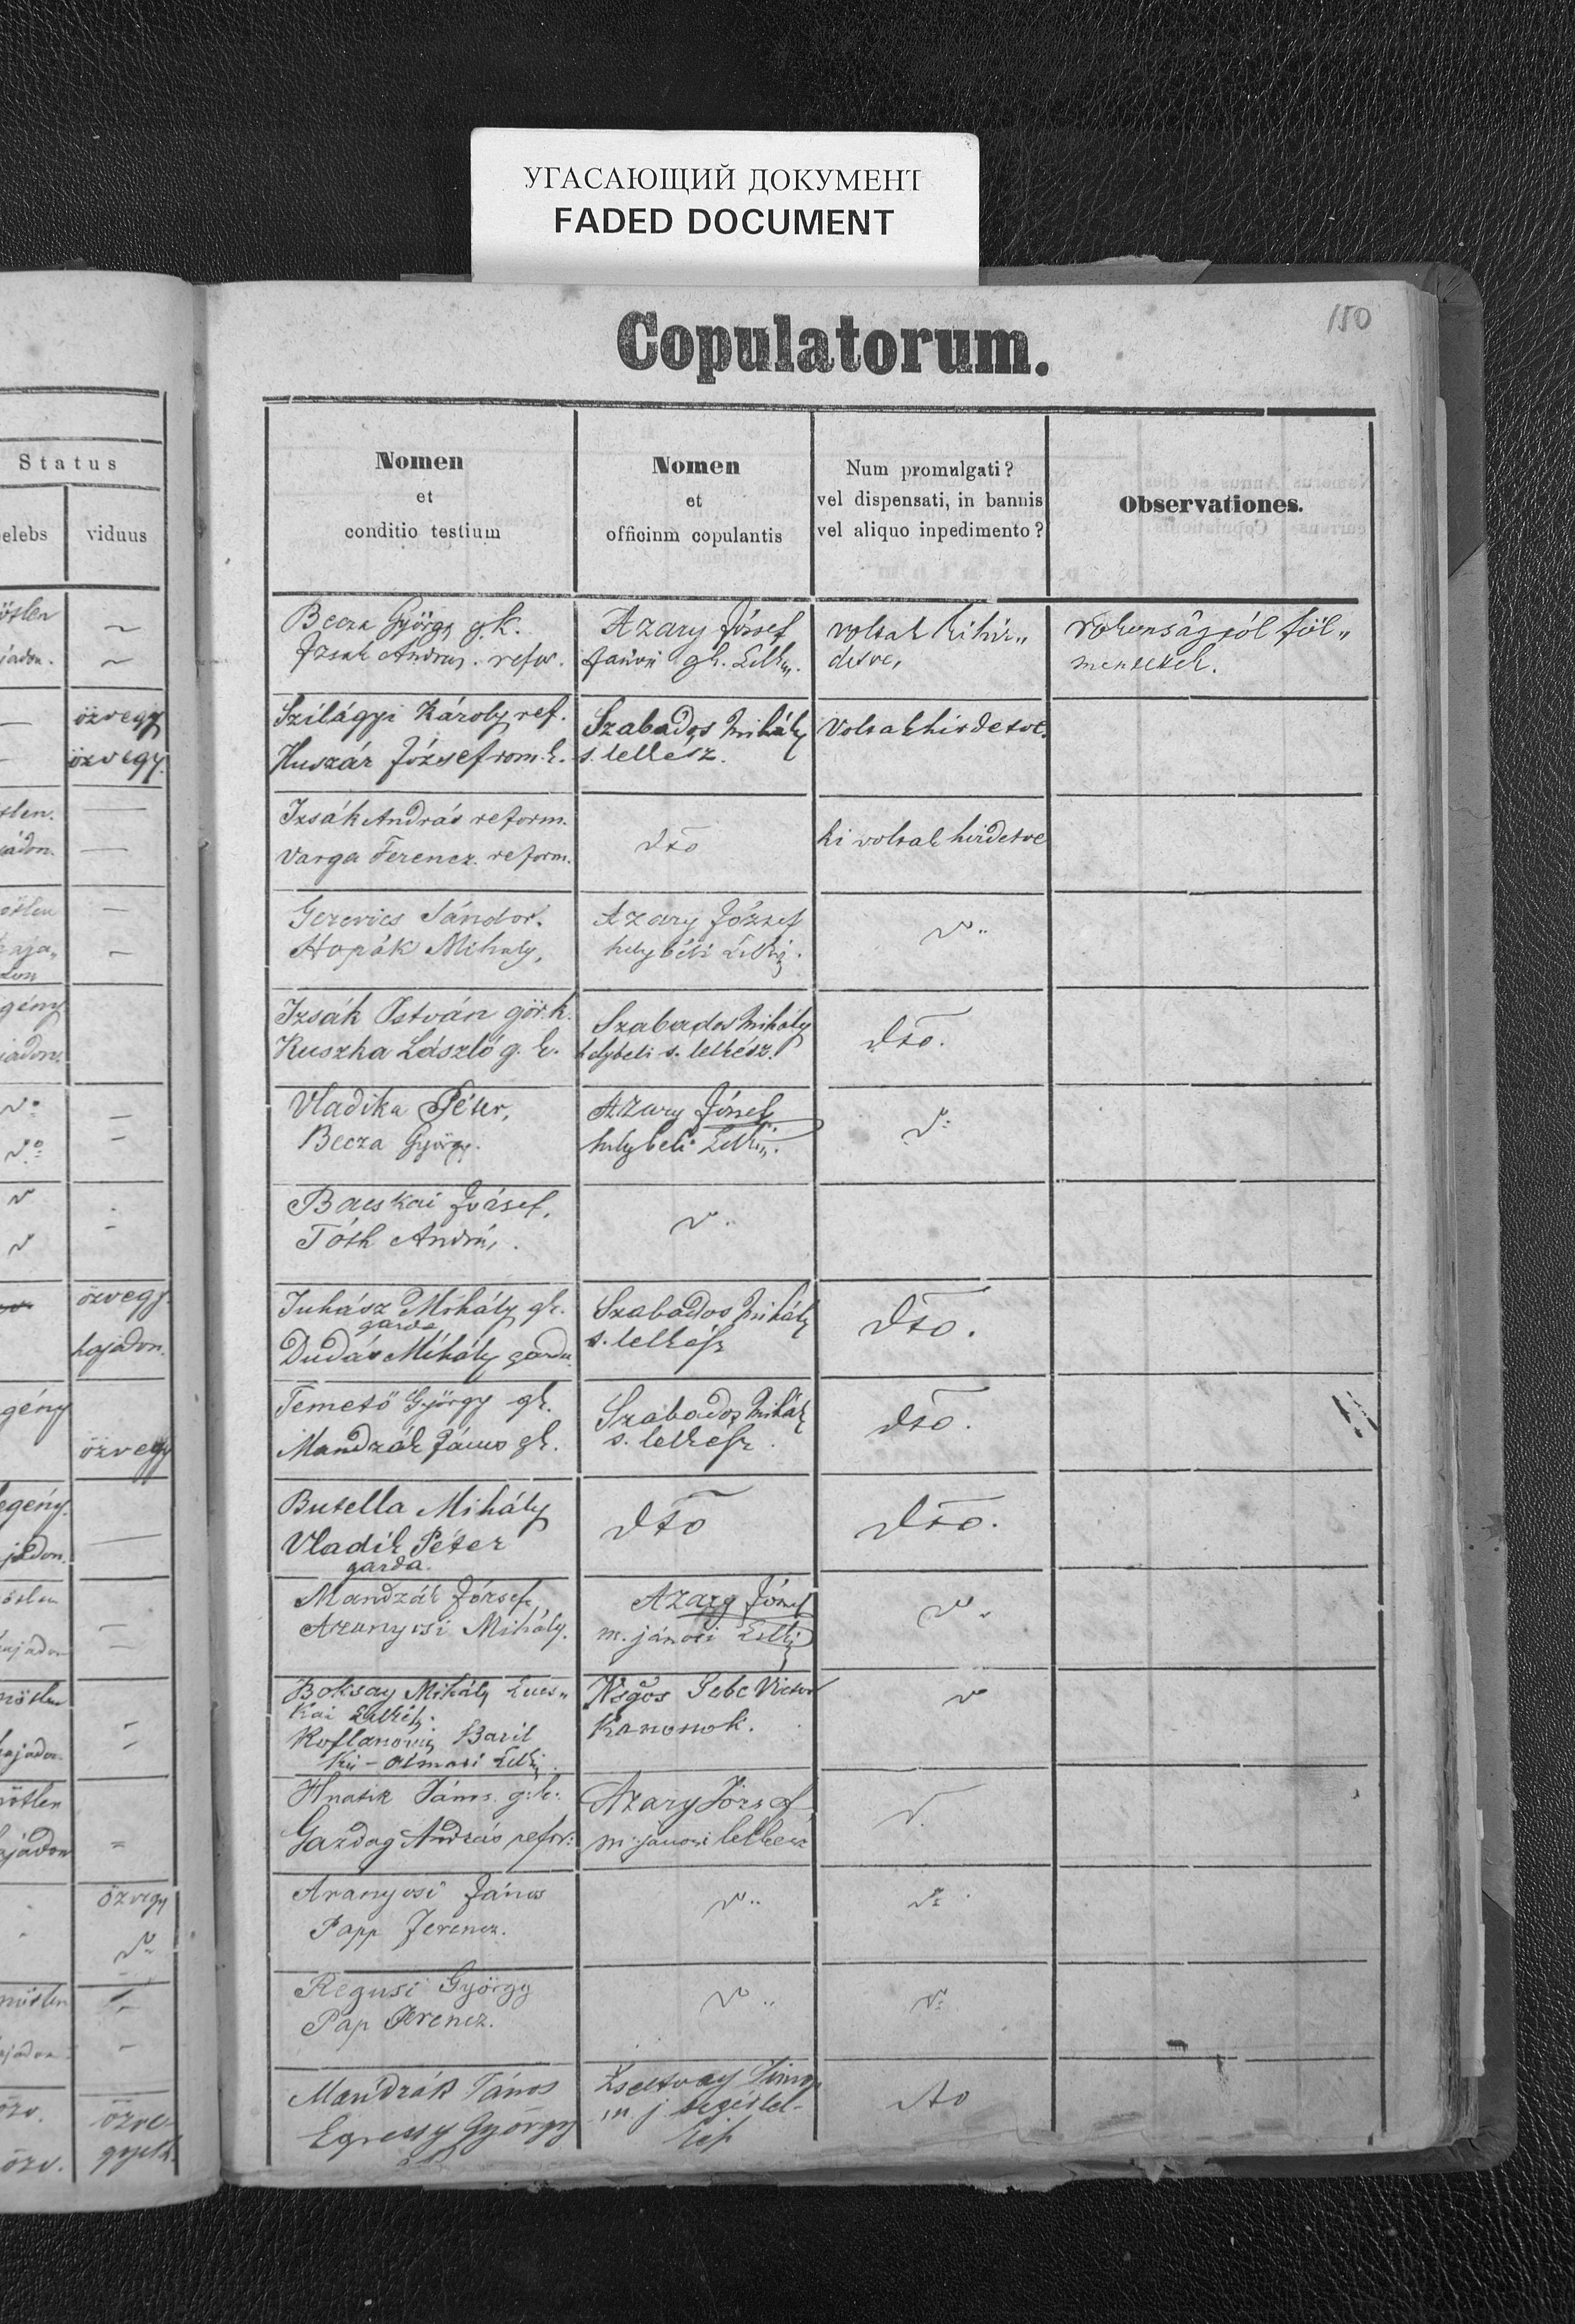 УГАСАЮЩИЙ ДОКУМЕНТ
FADED DOCUMENT
150
Copulatorum.
Status
elebs
viduus
Nomen
et
conditio testium
Nomen
et
officinm copulantis
Num promulgati?
vel dispensati, in bannis
vel aliquo inpedimento?
Observationes.
Becza György g.k.
Izsák András. refor.
Azary József
gk. Lelk.
voltak kihir„
detve,
rokonságról föl„
mentetek.
özvegy
özvegy.
Szilágyi Károly ref.
Huszár József rom. k.
Szabados Mihály
s. lelkész.
Voltak hirdetve.
Izsák András reform.
Varga Ferencz. reform.
dto
ki voltak hirdetve
Gerevics Sándor.
Hopák Mihály,
Azary József
helybéli Lelk.
Izsák István gör. k.
Kuszka László g. k.
Szabados Mihály
helybeli s. lelkész.
dto.
Vladika Péter,
Becza György.
Azary József
helybeli Lelk.
Bacskai József,
Tóth András.
özvegy.
hajadon.
Juhász Mihály gk.
garda
Dudás Mihály garda
Szabados Mihály
s. lelkész
Dto.
gény
özvegy
Temető György gk.
Mandzák János gk.
Szabados Mihály
s. lelkész.
dto.
egény.
jadon.
Butella Mihály
Vladik Péter
garda.
dto
Dto.
Mandzák József,
Aranyosi Mihály.
Azary József
m. jánosi Lelk.
Boksay Mihály
Bazil
Gebe Victor
Kanonok.
Hnatik János. g.k.
Gazdag András refor:
Azary József
m. jánosi lelkész
özvegy
Aranyosi János
Papp Ferencz.
Regusi György
Pap Ferencz.
özv.
özv.
özve-
gyek.
Mandzák János
Egressy György
m j
dto